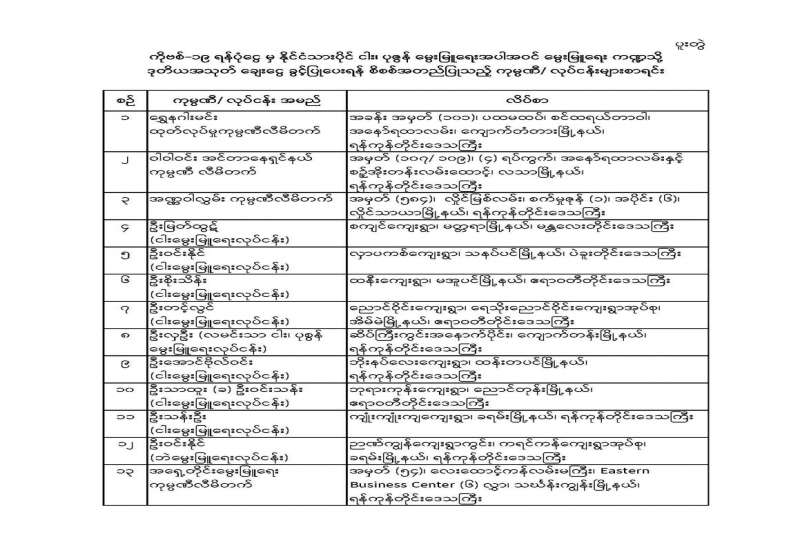 ပူးတွဲ
ကိုဗစ်-၁၉ ရန်ပုံငွေ မှ နိုင်ငံသားပိုင် ငါး၊ ပုစွန် မွေးမြူရေးအပါအဝင် မွေးမြူရေး ကဏ္ဍသို့
ဒုတိယအသုတ် ချေးငွေ ခွင့်ပြုပေးရန် စိစစ်အတည်ပြုသည့် ကုမ္ပဏီ/ လုပ်ငန်းများစာရင်း
စဉ် ကုမ္ပဏီ/ လုပ်ငန်း အမည် လိပ်စာ
၁ ရွှေနဂါးမင်း အခန်း အမှတ် (၁၀၁)၊ ပထမထပ်၊ စင်ထရယ်တာဝါ၊
ထုတ်လုပ်မှုကုမ္ပဏီလီမိတက် အနော်ရထာလမ်း၊ ကျောက်တံတားမြို့နယ်၊
ရန်ကုန်တိုင်းဒေသကြီး
၂ ဝါဝါဝင်း အင်တာနေရှင်နယ် အမှတ် (၁၀၇/ ၁၀၉)၊ (၄) ရပ်ကွက်၊ အနော်ရထာလမ်းနှင့်
ကုမ္ပဏီ လီမိတက် စဉ့်အိုးတန်းလမ်းထောင့်၊ လသာမြို့နယ်၊
ရန်ကုန်တိုင်းဒေသကြီး
၃ အဏ္ဏဝါလွှမ်း ကုမ္ပဏီလီမိတက် အမှတ် (၅၈၄)၊ လှိုင်မြစ်လမ်း၊ စက်မှုဇုန် (၁)၊ အပိုင်း (၆)၊
လှိုင်သာယာမြို့နယ်၊ ရန်ကုန်တိုင်းဒေသကြီး
၄ ဦးမြတ်ထွဋ် စကျင်ကျေးရွာ၊ မတ္တရာမြို့နယ်၊ မန္တလေးတိုင်းဒေသကြီး
(ငါးမွေးမြူရေးလုပ်ငန်း)
၅ ဦးဝင်းနိုင် လှာပကာစ်ကျေးရွာ၊ သနပ်ပင်မြို့နယ်၊ ပဲခူးတိုင်းဒေသကြီး
(ငါးမွေးမြူရေးလုပ်ငန်း)
၆ ဦးစိုးသိန်း ထနီးကျေးရွာ၊ မအူပင်မြို့နယ်၊ ဧရာဝတီတိုင်းဒေသကြီး
(ငါးမွေးမြူရေးလုပ်ငန်း)
၇ ဦးတင့်လွင် ညောင်ဝိုင်းကျေးရွာ၊ ရေသိုးညောင်ဝိုင်းကျေးရွာအုပ်စု၊
(ငါးမွေးမြူရေးလုပ်ငန်း) အိမ်မဲမြို့နယ်၊ ဧရာဝတီတိုင်းဒေသကြီး
၈ ဦးလှဦး (လမင်းသာ ငါး၊ ပုစွန် ဆိပ်ကြီးကွင်းအနောက်ပိုင်း၊ ကျောက်တန်းမြို့နယ်၊
မွေးမြူရေးလုပ်ငန်း) ရန်ကုန်တိုင်းဒေသကြီး
၉ ဦးအောင်ဗိုလ်ဝင်း ဘိုးနပ်လေးကျေးရွာ၊ ထန်းတပင်မြို့နယ်၊
(ငါးမွေးမြူရေးလုပ်ငန်း) ရန်ကုန်တိုင်းဒေသကြီး
၁၀ ဦးသာထူး (ခ) ဦးဝင်းသန်း ဘုရားကုန်းကျေးရွာ၊ ညောင်တုန်းမြို့နယ်၊
(ငါးမွေးမြူရေးလုပ်ငန်း) ဧရာဝတီတိုင်းဒေသကြီး
၁၁ ဦးသန်းဦး ကျိုးကျိုးကျကျေးရွာ၊ ခရမ်းမြို့နယ်၊ ရန်ကုန်တိုင်းဒေသကြီး
(ငါးမွေးမြူရေးလုပ်ငန်း)
၁၂ ဦးဝင်းနိုင် ဉာဏ်ကျွန်ကျေးရွာကွင်း၊ ကရင်ကန်ကျေးရွာအုပ်စု၊
(ဘဲမွေးမြူရေးလုပ်ငန်း) ခရမ်းမြို့နယ်၊ ရန်ကုန်တိုင်းဒေသကြီး
၁၃ အရှေ့တိုင်းမွေးမြူရေး အမှတ် (၅၄)၊ လေးထောင့်ကန်လမ်းမကြီး၊ Eastern
ကုမ္ပဏီလီမိတက် Business Center (၆) လွှာ၊ သင်္ဃန်းကျွန်းမြို့နယ်၊
ရန်ကုန်တိုင်းဒေသကြီး